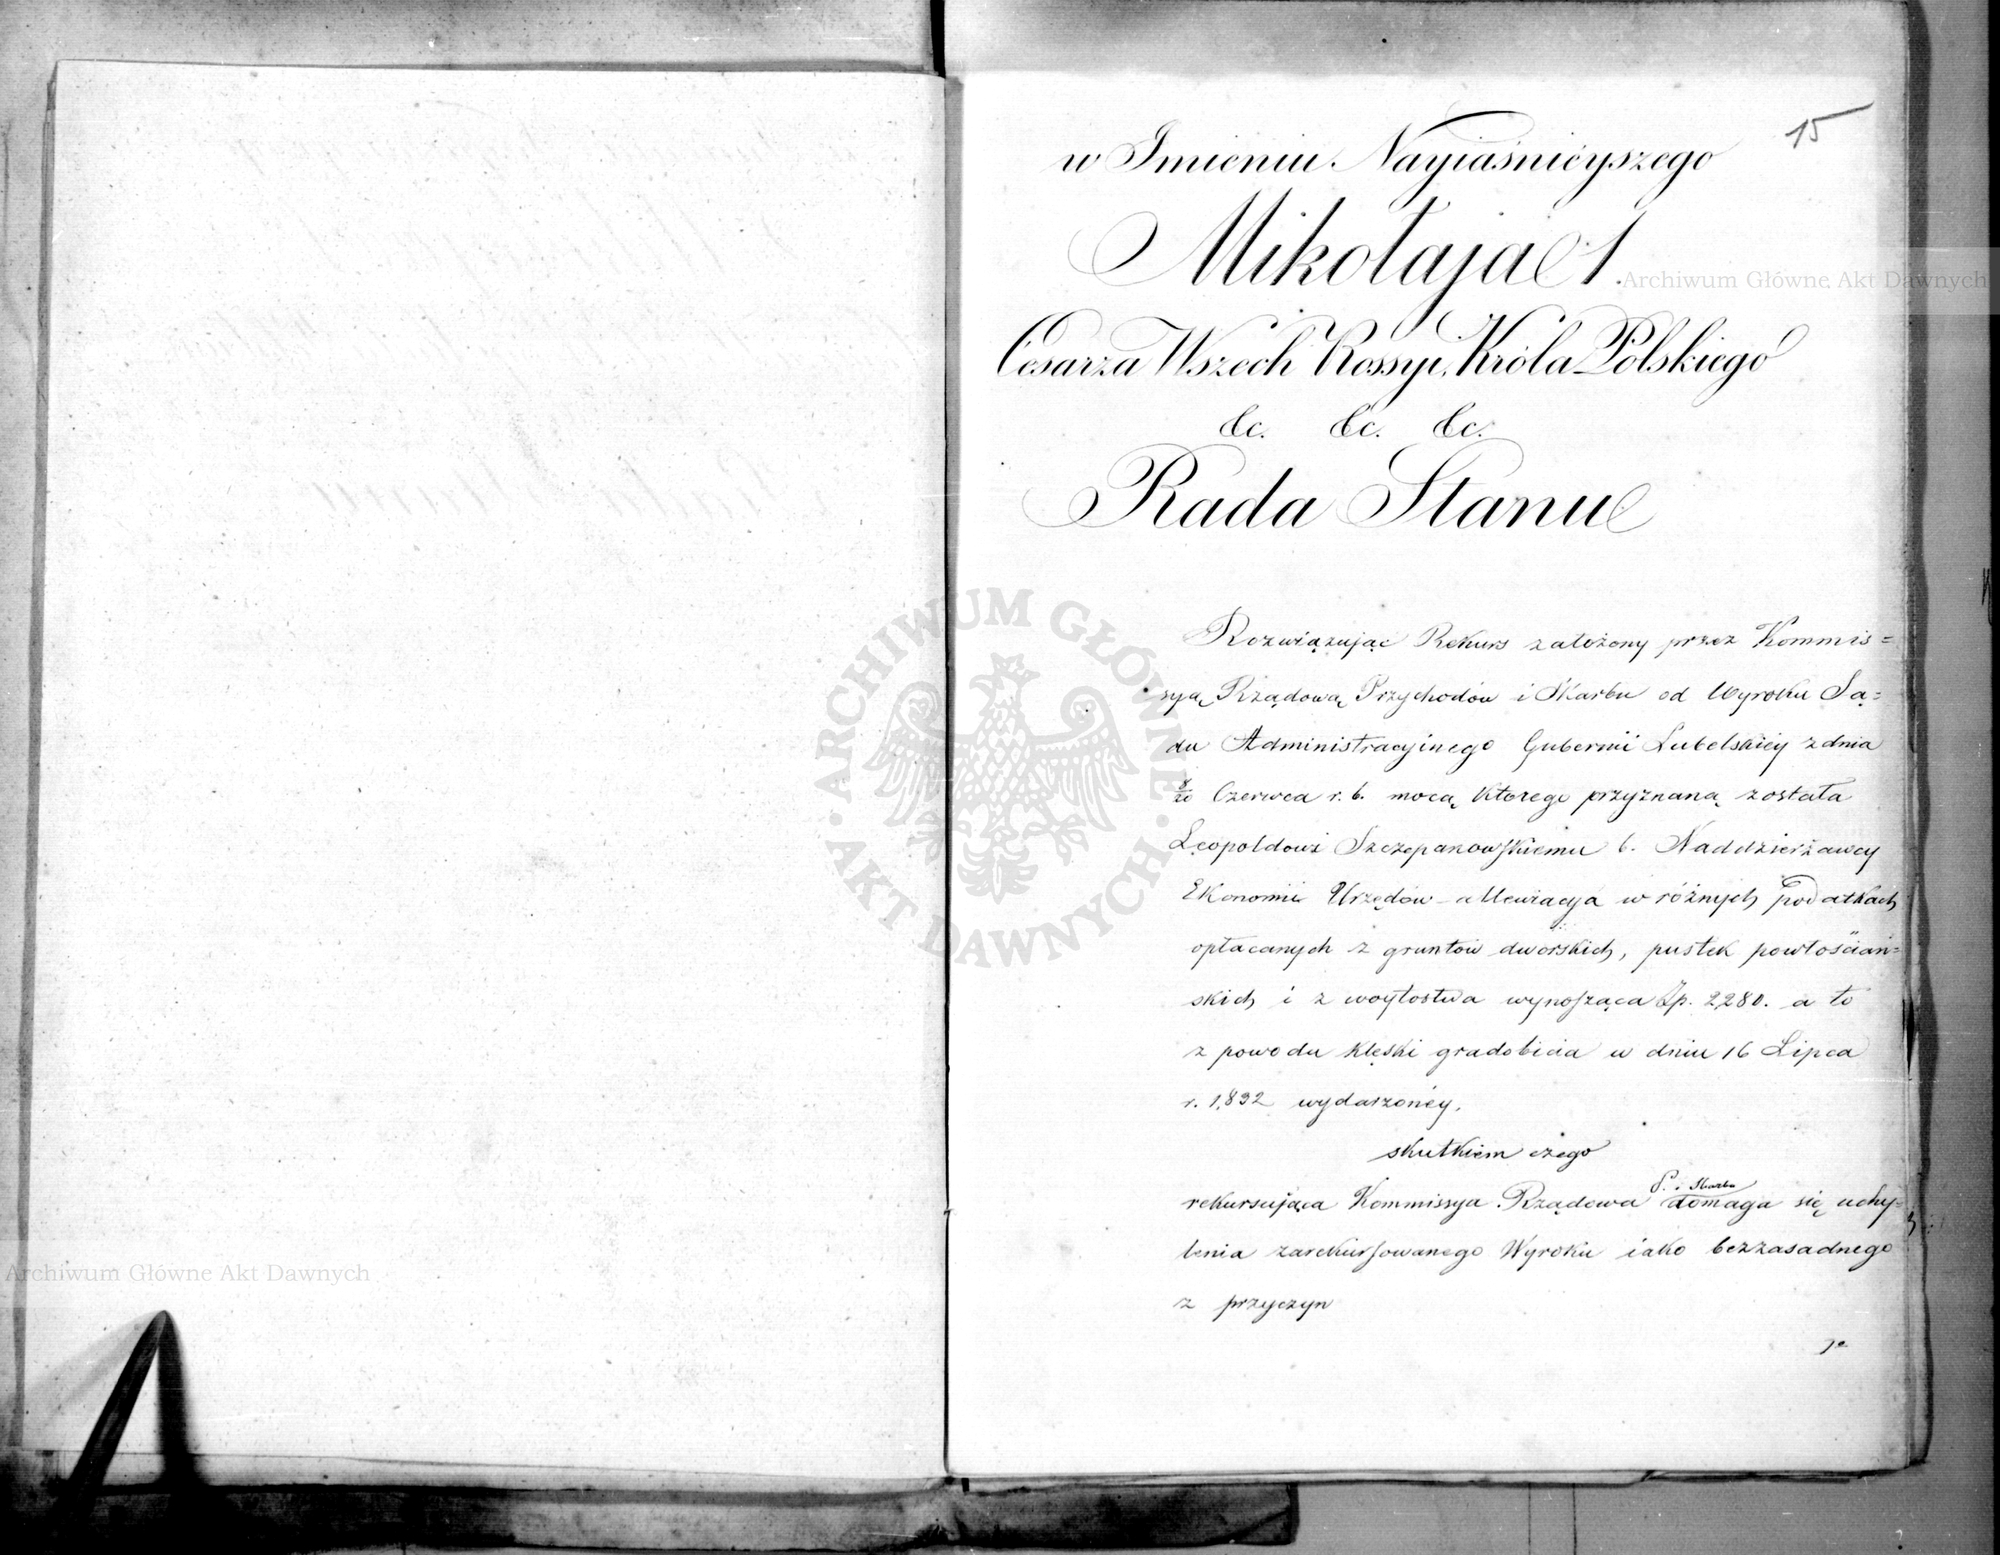 15
w Imieniu Nayiaśnieyszego
Mikołaja 1.
Cesarza Wszech Rossyi, Króla Polskiego
&c. &c. &c.
Rada Stanu
Rozwiązując Rekurs założony przez Kommis=
syą Rządową Przychodów i Skarbu od Wyroku Są=
du Administracyinego Gubernii Lubelskiey z dnia
8/20 Czerwca r. b. mocą którego przyznaną została
Leopoldowi Szczepanowskiemu b. Naddzierżawcy
Ekonomii Urzędów alewiacya w różnych podatkach
opłacanych z gruntów dworskich, pustek powłościań=
skich i z woytostwa wynosząca Zp. 2,280. a to
z powodu klęski gradobicia w dniu 16 Lipca
r. 1,832 wydarzoney,
skutkiem czego
rekursująca Kommissya Rządowa P. i Skarbu domaga się uchy=
lenia zarekursowanego Wyroku iako bezzasadnego
z przyczyn
1e
Archiwum Główne Akt Dawnych
Archiwum Główne Akt Dawnych
ARCHIWUM GŁÓWNE · AKT DAWNYCH ·